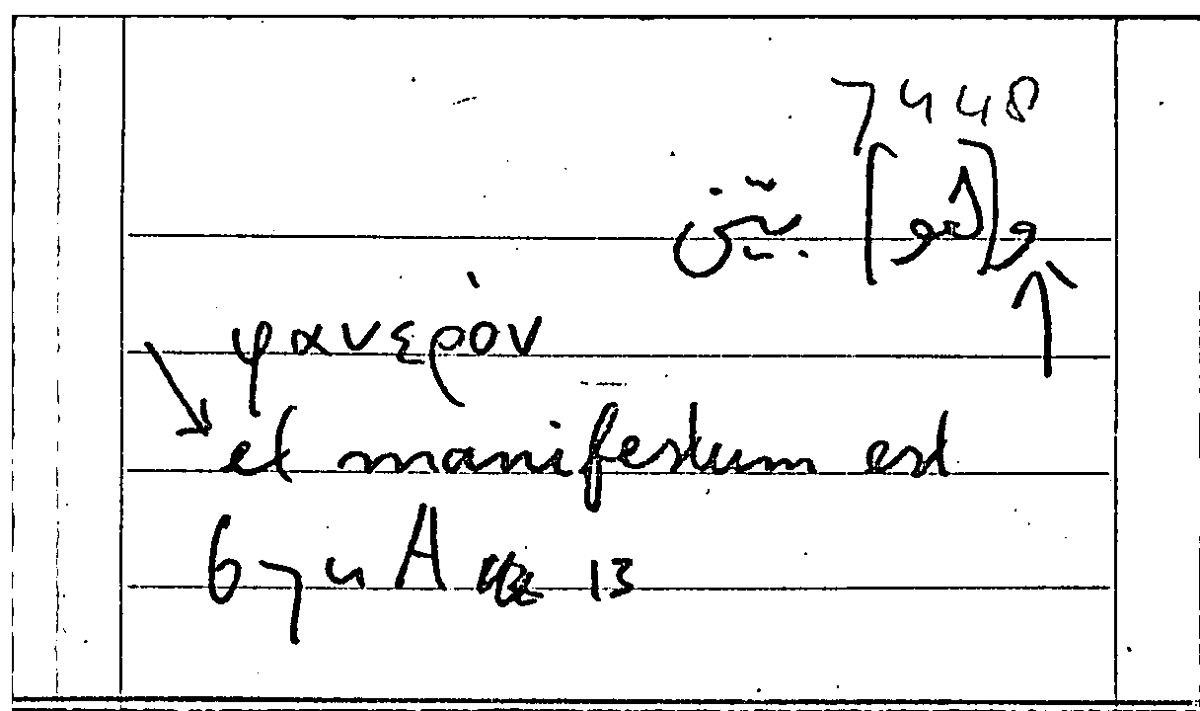 7448
و[هو] بيّن
φανερὸν
et manifestum est
674 A 13